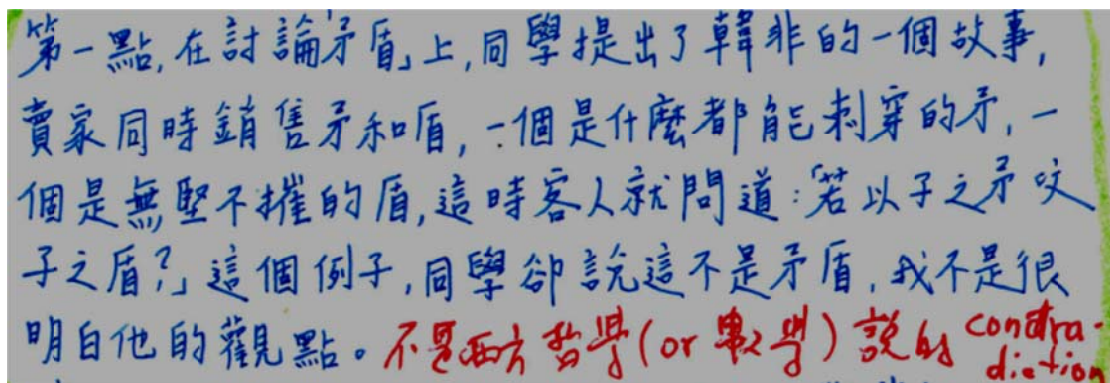 第一點,在討論「矛盾」上,同學提出了韓非的一個故事,
賣家同時銷售矛和盾,一個是什麼都能刺穿的矛,一
個是無堅不摧的盾,這時客人就問道:「若以子之矛攻
子之盾?」這個例子,同學卻說這不是矛盾,我不是很
明白他的觀點。不是西方哲學(or 數學)說的 contra-
diction